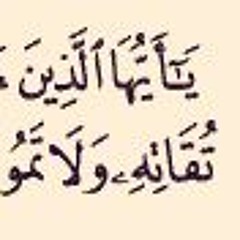 يَٰٓأَيُّهَا ٱلَّذِينَ
تُقَاتِهِۦ وَلَا تَمُو